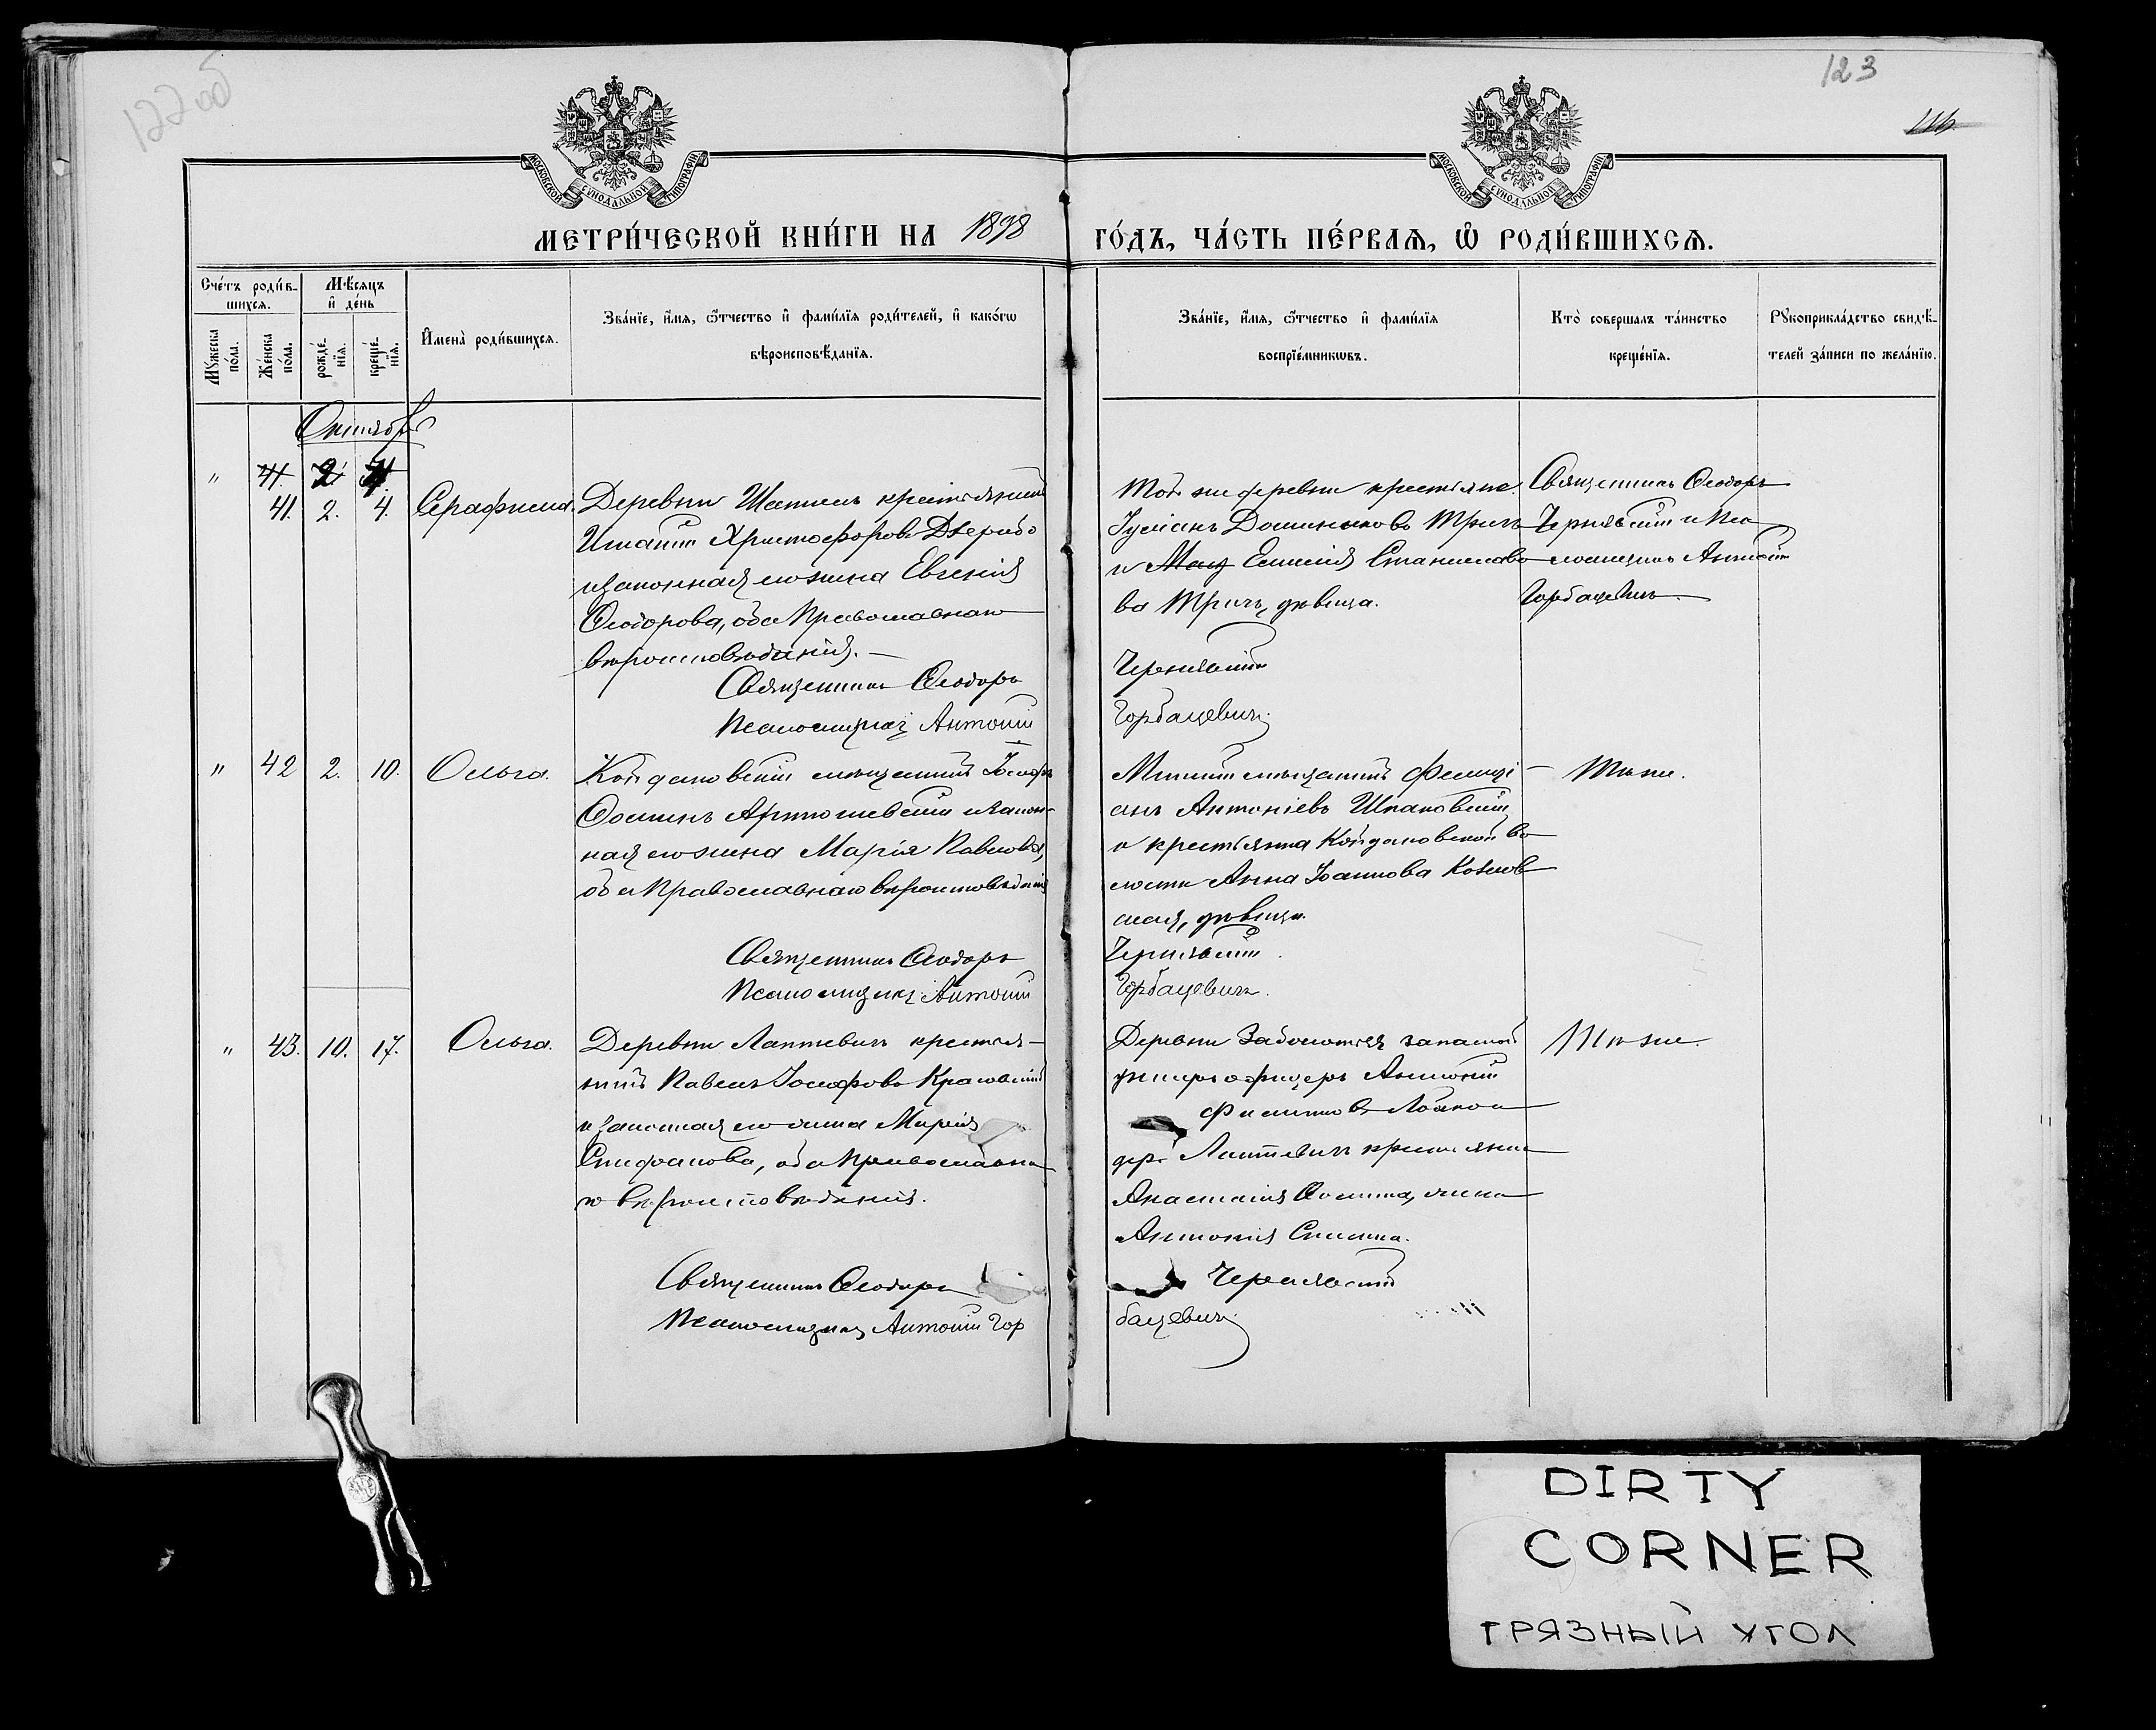 122 об
123
116
МОСКОВСКОЙ СѴНОДАЛЬНОЙ ТИПОГРАФІИ
МОСКОВСКОЙ СѴНОДАЛЬНОЙ ТИПОГРАФІИ
МЕТРИ́ЧЕСКОЙ КНИ́ГИ НА 1898
ГО́ДЪ, ЧА́СТЬ ПЕ́РВАѦ, Ѡ҆ РОДИ́ВШИХСѦ.
Сче́тъ роди́в-
шихсѧ.
Мꙋ́жеска по́ла.
Же́нска по́ла.
Мѣ́сѧцъ
и҆ де́нь
рожде́-
нїѧ.
креще́-
нїѧ.
И҆мена̀ роди́вшихсѧ.
Зва́нїе, и҆́мѧ, ѻ҆́тчество и҆ фами́лїѧ роди́телей, и҆ како́гѡ
вѣроисповѣ́данїѧ.
Зва́нїе, и҆́мѧ, ѻ҆́тчество и҆ фами́лїѧ
воспрїе́мникѡвъ.
Кто̀ соверша́лъ та́инство
креще́нїѧ.
Рꙋкоприкла́дство свидѣ́-
телей за́писи по жела́нїю.
Октябрь
" 41. 2 4.
41. 2. 4. Серафима.
Деревни Шатилъ крестьянинъ
Игнатій Христофоровъ
и законная его жена Евгенія
Ѳеодорова, оба Православнаго
вѣроисповѣданія. —
Священникъ Ѳеодоръ
Псаломщикъ Антоній
Той же деревни крестьяне
Іуліанъ Доминиковъ Тричъ
и Емилія Станиславо
ва Тричъ, дѣвица.
Чернявскій
Горбацевичъ
Священникъ Ѳеодоръ
Чернявскій и Пса
ломщикъ Антоній
Горбацевичъ.
" 42 2. 10. Ольга.
Койдановскій мѣщанинъ Іосифъ
Ѳоминъ и закон-
ная его жена Марія Павлова,
оба Православнаго вѣроисповѣданія
Священникъ Ѳеодоръ
Псаломщикъ Антоній
Минскій мѣщанинъ Фелиці
анъ Антоніевъ Шпаковскій
и крестьянка Койдановской во
лости Анна Іоаннова Козлов
ская, дѣвица.
Чернявскій.
Горбацевичъ.
Тѣ же.
" 43. 10. 17. Ольга.
Деревни Лаптевичъ крестья-
нинъ Павелъ Іосифовъ
и законная его жена Марія
Стефанова, оба Православна
го вѣроисповѣданія.
Священникъ Ѳеодоръ
Псаломщикъ Антоній Гор
Деревни Заболотья запасной
унтеръ офицеръ Антоній
дер. Лаптевичъ крестьянка
Анастасія Ѳомина, жена
Антонія
Чернявскій
бацевичъ
Тѣ же.
DIRTY
CORNER
ГРЯЗНЫЙ УГОЛ